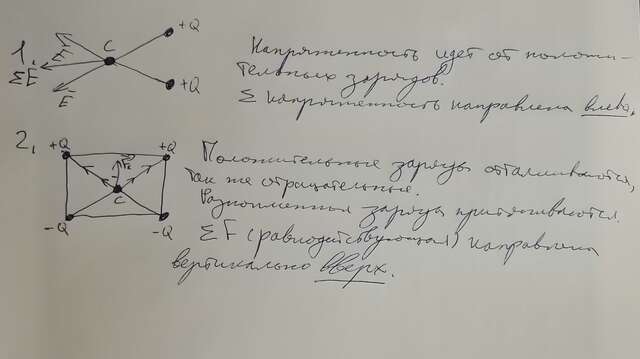 1.
+Q
C
+Q
E
ΣE
E
Напряженность идет от положи-
тельных зарядов.
Σ напряженность направлена влево.
2.
+Q
+Q
C
-Q
-Q
Положительные заряды отталкиваются,
так же отрицательные.
Разноименные заряды притягиваются.
ΣF (равнодействующая) направлена
вертикально вверх.